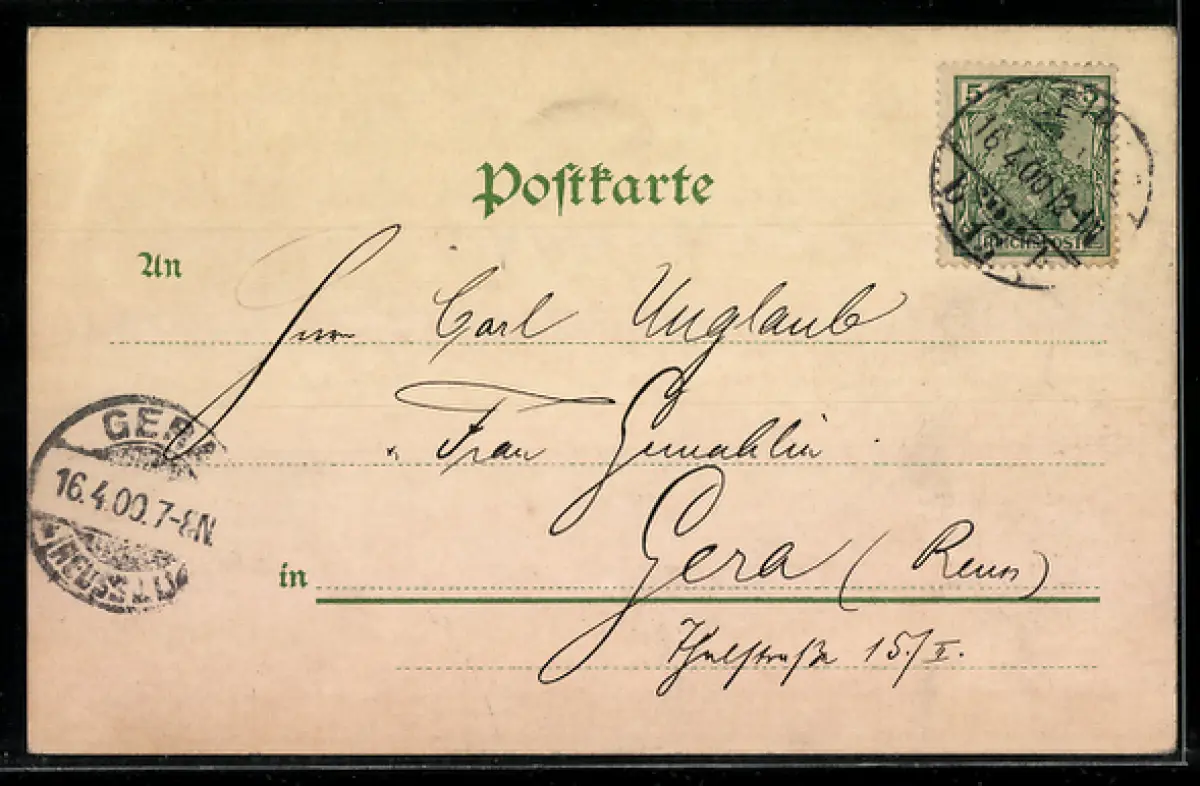 Postkarte
5
16.4.00 12-1N
REICHSPOST
An
Herrn Carl Unglaub
u. Frau Gemahlin.
GERA
16.4.00.7-8N.
(REUSS j.L.)
in Gera (Reuss)
Thalstraße 15/I.